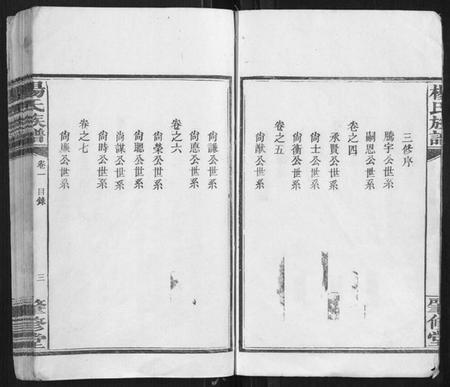 楊氏族譜
肇修堂
三修序
騰宇公世系
嗣恩公世系
卷之四
承賢公世系
尙士公世系
尙衡公世系
卷之五
尙猷公世系
尙謙公世系
尙應公世系
卷之六
尙榮公世系
尙聰公世系
尙謀公世系
尙時公世系
卷之七
尙廉公世系
楊氏族譜
卷一
目錄
三
肇修堂